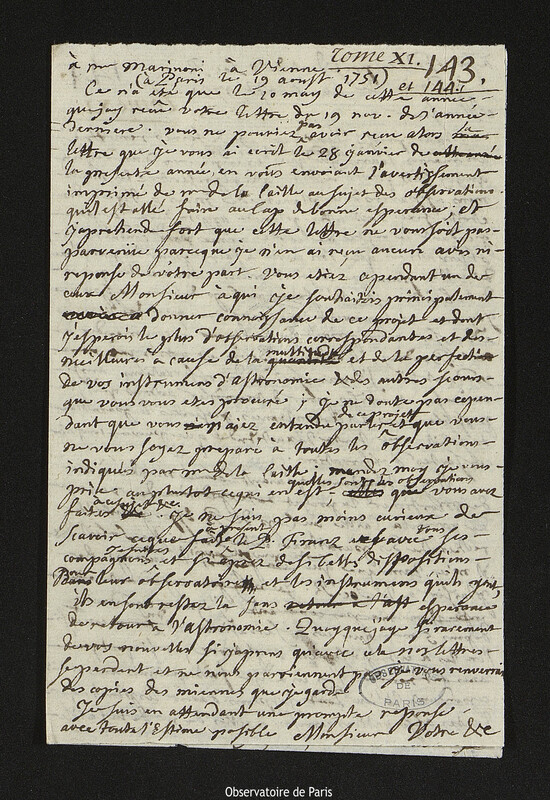 Tome XI. 143.
et 144.
à mr Marinoni à Vienne
(à Paris le 19 aoust 1751)
Ce n'a été que le 10 may de cette année
que j'ay receu votre lettre du 19 nov. de l'année
derniere. vous ne pouviez pas avoir receu alors la
lettre que je vous ai ecrit le 28 janvier de
la presente année, en vous envoiant l'avertissement
imprimé de mr de la Caille au sujet des observations
qu'il est allé faire au Cap de bonne esperance, et
j'apréhend fort que cette lettre ne vous soit pas
parvenüe parceque je n'en ai reçu aucun avis ni
reponse de vôtre part. Vous etiez cependant un de
ceux Monsieur à qui je souhaitois principalement
donner connoissance de ce projet et dont
j'esperois le plus d'observations correspondantes et des
meilleures à cause de la multitude et de la perfection
de vos instrumens d'Astronomie & des autres secours
que vous vous etes procuré; Je ne doute pas cepen-
dant que vous n'ayez entendu parler de ce projet et que vous
ne vous soyez preparé à toutes les observations
indiqués par mr de la Caille; mandez moy je vous
prie au plustot ce qui en est quelles sont les observations que vous avez
faites. Je ne suis pas moins curieux de
scavoir ce que fait à present le P. Franz avec tous ses
et si apres de si belles dispositions
leur observatoire et les instrumens qu'ils y ont,
ils en sont restez là sans esperance
de retour à l'astronomie. Quoyque j'aye si rarement
de vos nouvelles si j'aprens qu'avec cela nos lettres
se perdent et ne nous parviennent pas je vous renverrai
des copies des miennes que je garde.
Je suis en attendant une prompte reponse
avec toute l'Estime possible Monsieur Votre &c
OBSERVATOIRE DE PARIS
Observatoire de Paris